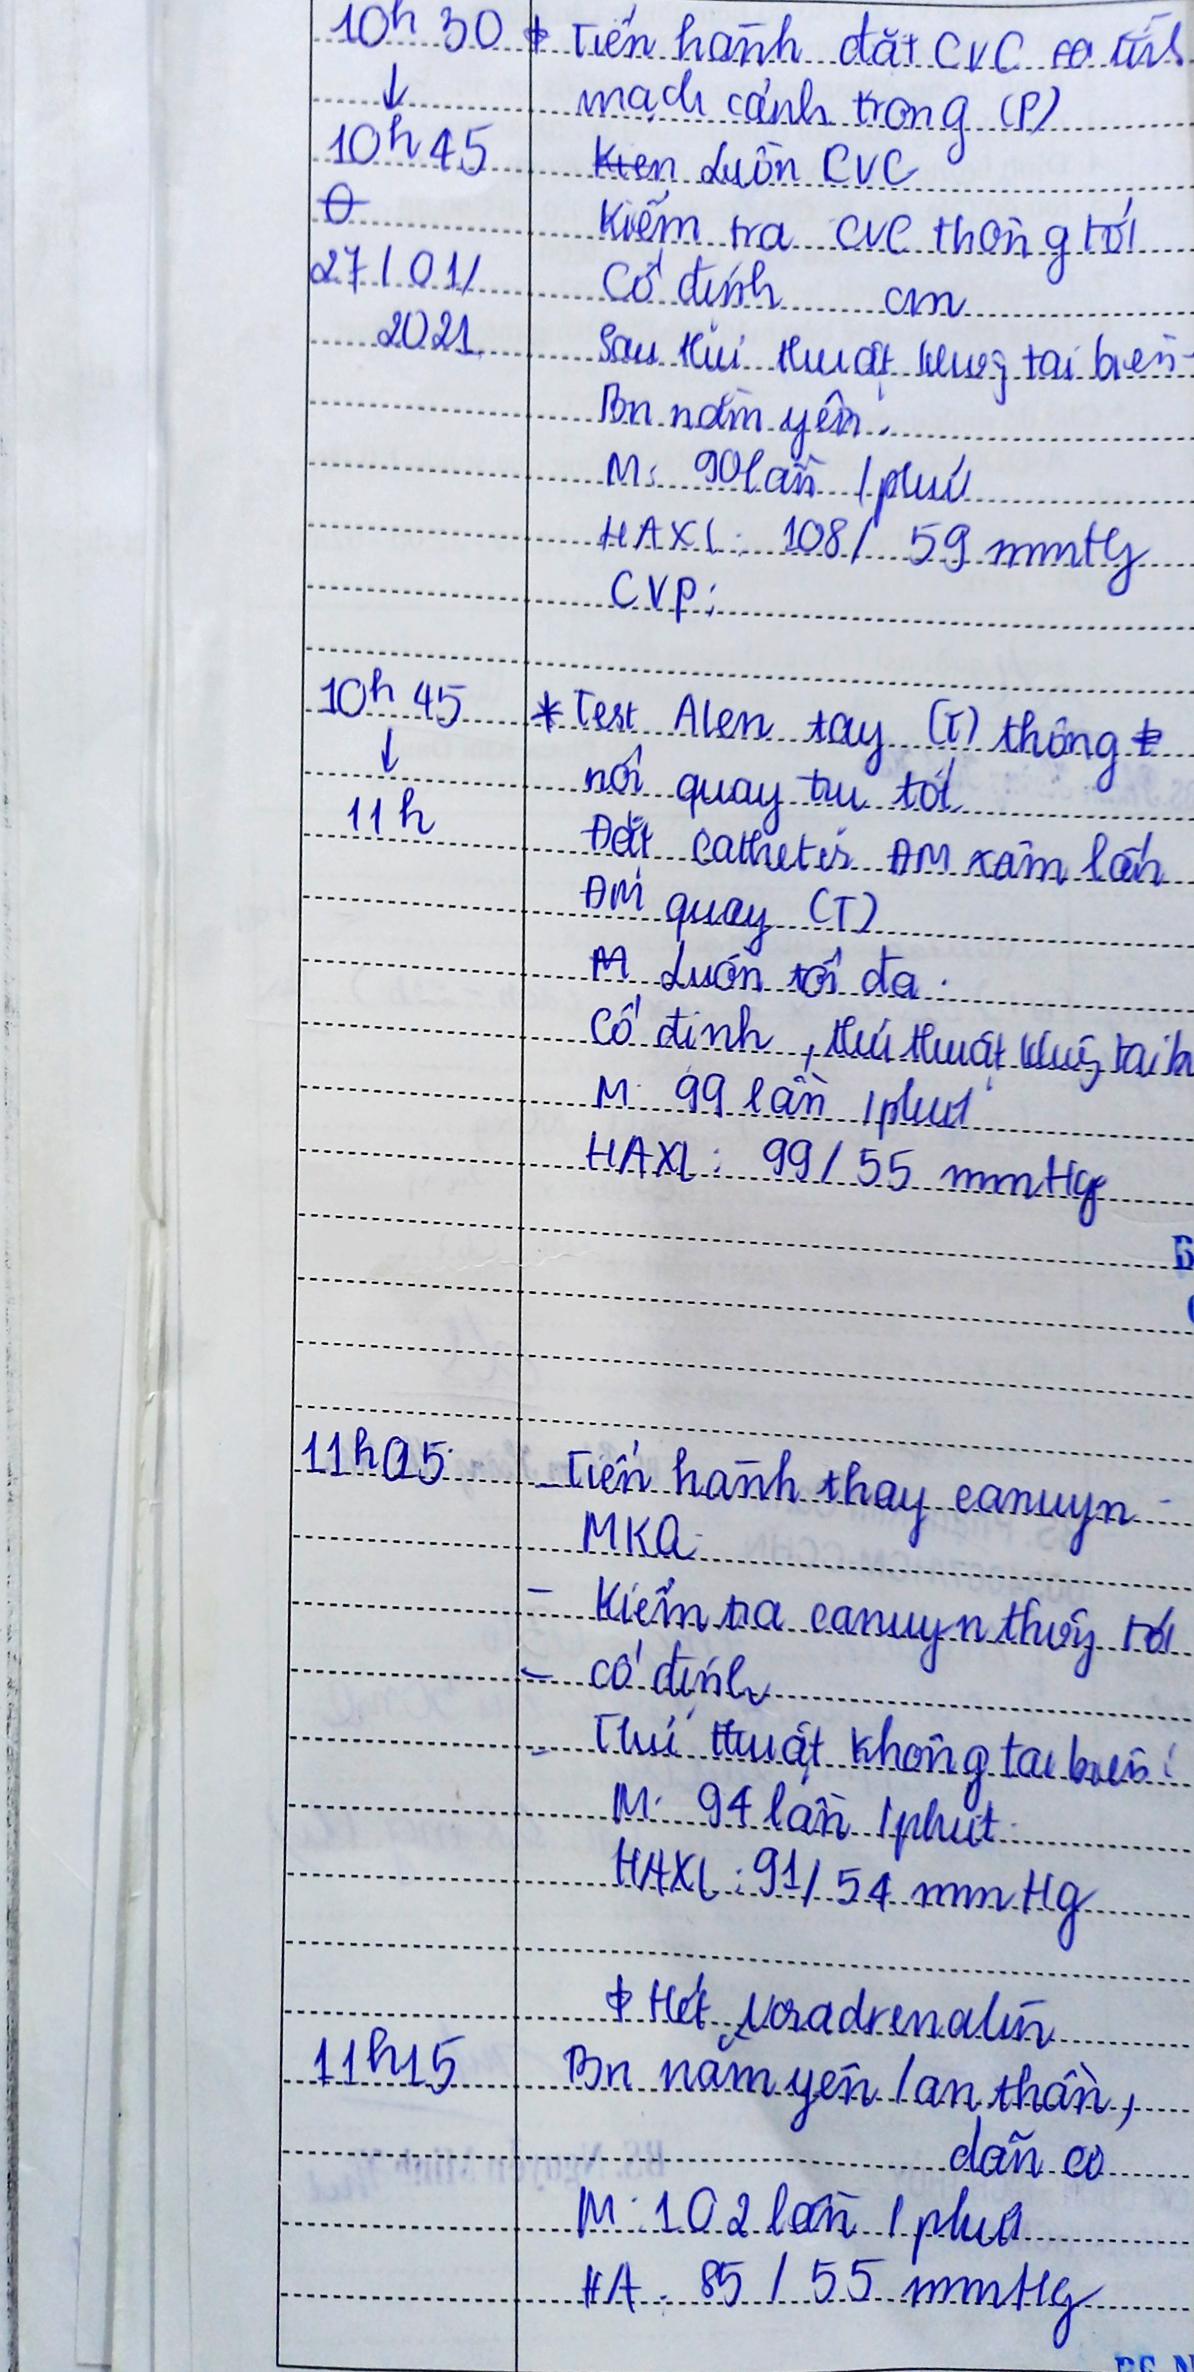 10h 30 * Tiến hành đặt CVC tĩnh
↓ mạch cảnh trong (P)
10h45 Luồn CVC
Kiểm tra CVC thông tốt
27/01/ Cố định cm
2021 Sau thủ thuật không tai biến
Bn nằm yên.
M: 90 lần /phút
HAXL: 108/ 59 mmHg
CVP:
10h 45 * Test Alen tay (T) thông
↓ nối quay trụ tốt
11h Đặt catheter ĐM xâm lấn
ĐM quay (T)
Luồn tối đa.
Cố định, thủ thuật không tai b
M: 99 lần /phút
HAXL: 99/55 mmHg
11h05 - Tiến hành thay canuyn
MKQ
- Kiểm tra canuyn thông tốt
- cố định
- Thủ thuật không tai biến.
M: 94 lần /phút.
HAXL: 91/54 mmHg
* Hết Noradrenalin
11h15 Bn nằm yên / an thần,
dãn cơ
M: 102 lần /phút
HA: 85 / 55 mmHg
BS.N